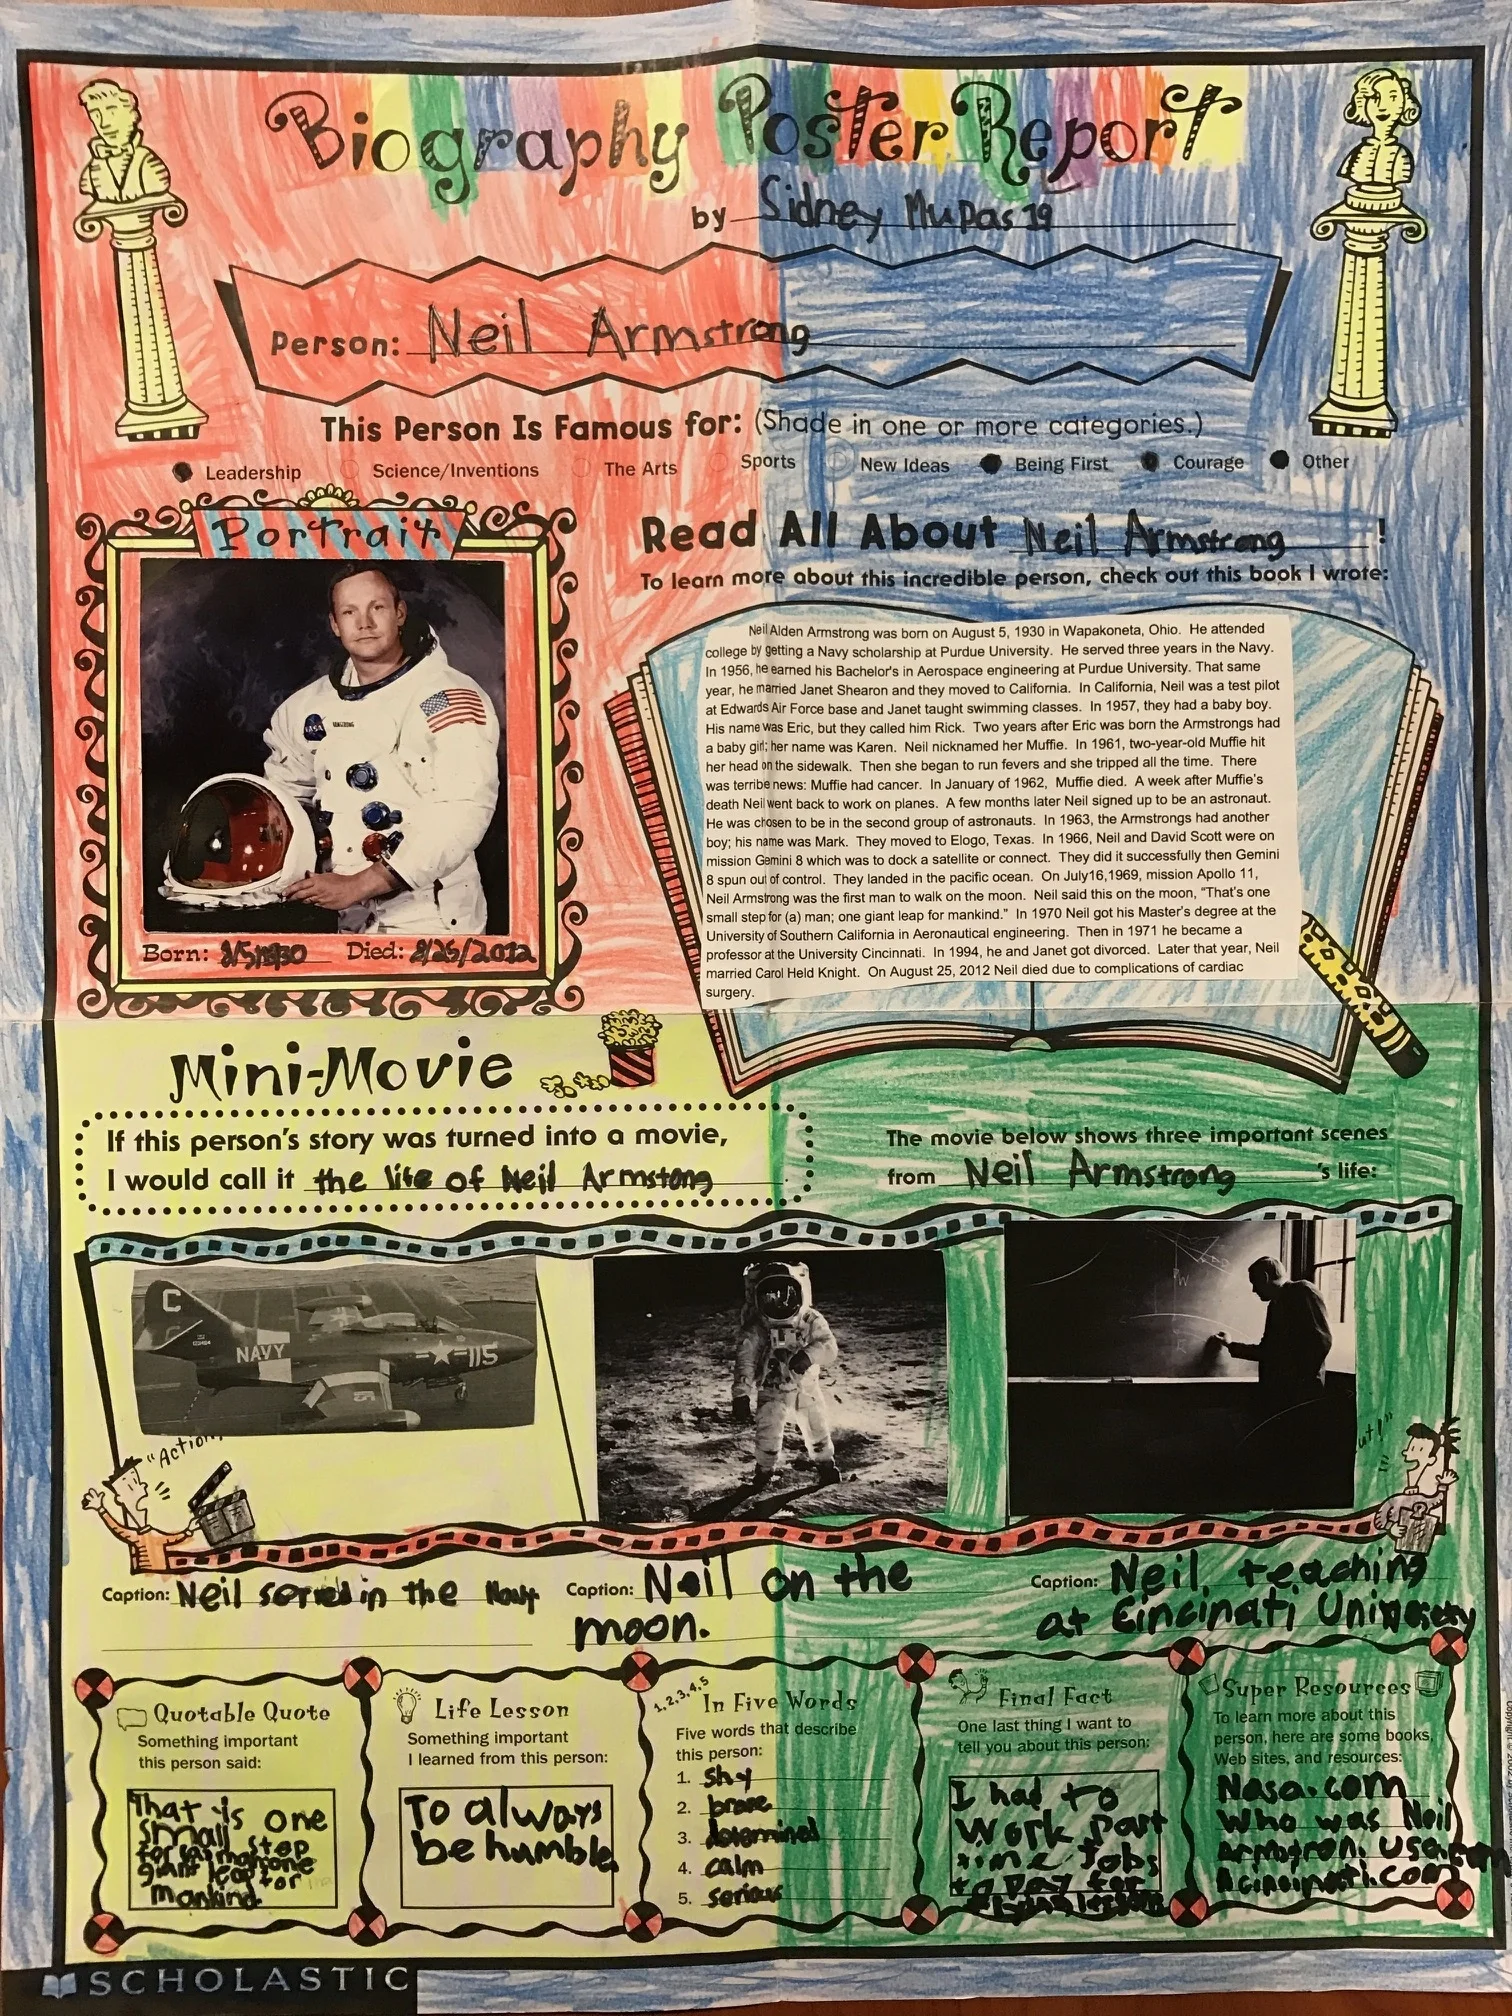 Biography Poster Report
by Sidney Mupas 19
Person: Neil Armstrong
This Person Is Famous for: (Shade in one or more categories.)
Leadership Science/Inventions The Arts Sports New Ideas Being First Courage Other
Portrait
NASA
Born: 8/5/1930 Died: 8/25/2012
Read All About Neil Armstrong!
To learn more about this incredible person, check out this book I wrote:
Neil Alden Armstrong was born on August 5, 1930 in Wapakoneta, Ohio. He attended
college by getting a Navy scholarship at Purdue University. He served three years in the Navy.
In 1956, he earned his Bachelor's in Aerospace engineering at Purdue University. That same
year, he married Janet Shearon and they moved to California. In California, Neil was a test pilot
at Edwards Air Force base and Janet taught swimming classes. In 1957, they had a baby boy.
His name was Eric, but they called him Rick. Two years after Eric was born the Armstrongs had
a baby girl; her name was Karen. Neil nicknamed her Muffie. In 1961, two-year-old Muffie hit
her head on the sidewalk. Then she began to run fevers and she tripped all the time. There
was terribe news: Muffie had cancer. In January of 1962, Muffie died. A week after Muffie's
death Neil went back to work on planes. A few months later Neil signed up to be an astronaut.
He was chosen to be in the second group of astronauts. In 1963, the Armstrongs had another
boy; his name was Mark. They moved to Elogo, Texas. In 1966, Neil and David Scott were on
mission Gemini 8 which was to dock a satellite or connect. They did it successfully then Gemini
8 spun out of control. They landed in the pacific ocean. On July16,1969, mission Apollo 11,
Neil Armstrong was the first man to walk on the moon. Neil said this on the moon, "That's one
small step for (a) man; one giant leap for mankind." In 1970 Neil got his Master's degree at the
University of Southern California in Aeronautical engineering. Then in 1971 he became a
professor at the University Cincinnati. In 1994, he and Janet got divorced. Later that year, Neil
married Carol Held Knight. On August 25, 2012 Neil died due to complications of cardiac
surgery.
Mini-Movie
If this person's story was turned into a movie,
I would call it the life of Neil Armstong
The movie below shows three important scenes
from Neil Armstrong's life:
C
NAVY
115
"Action
ut!"
Caption: Neil served in the Navy
Caption: Neil on the
moon.
Caption: Neil, teaching
at Cincinati University
Quotable Quote
Something important
this person said:
That is one
small step
for a man one
giant leap for
mankind.
Life Lesson
Something important
I learned from this person:
To always
be humble.
1,2,3,4,5
In Five Words
Five words that describe
this person:
1. shy
2. brave
3. determined
4. calm
5. serious
Final Fact
One last thing I want to
tell you about this person:
I had to
work part
time Jobs
to Pay for
flying lesson
Super Resources
To learn more about this
person, here are some books,
Web sites, and resources:
Nasa.com
Who was Neil
SCHOLASTIC